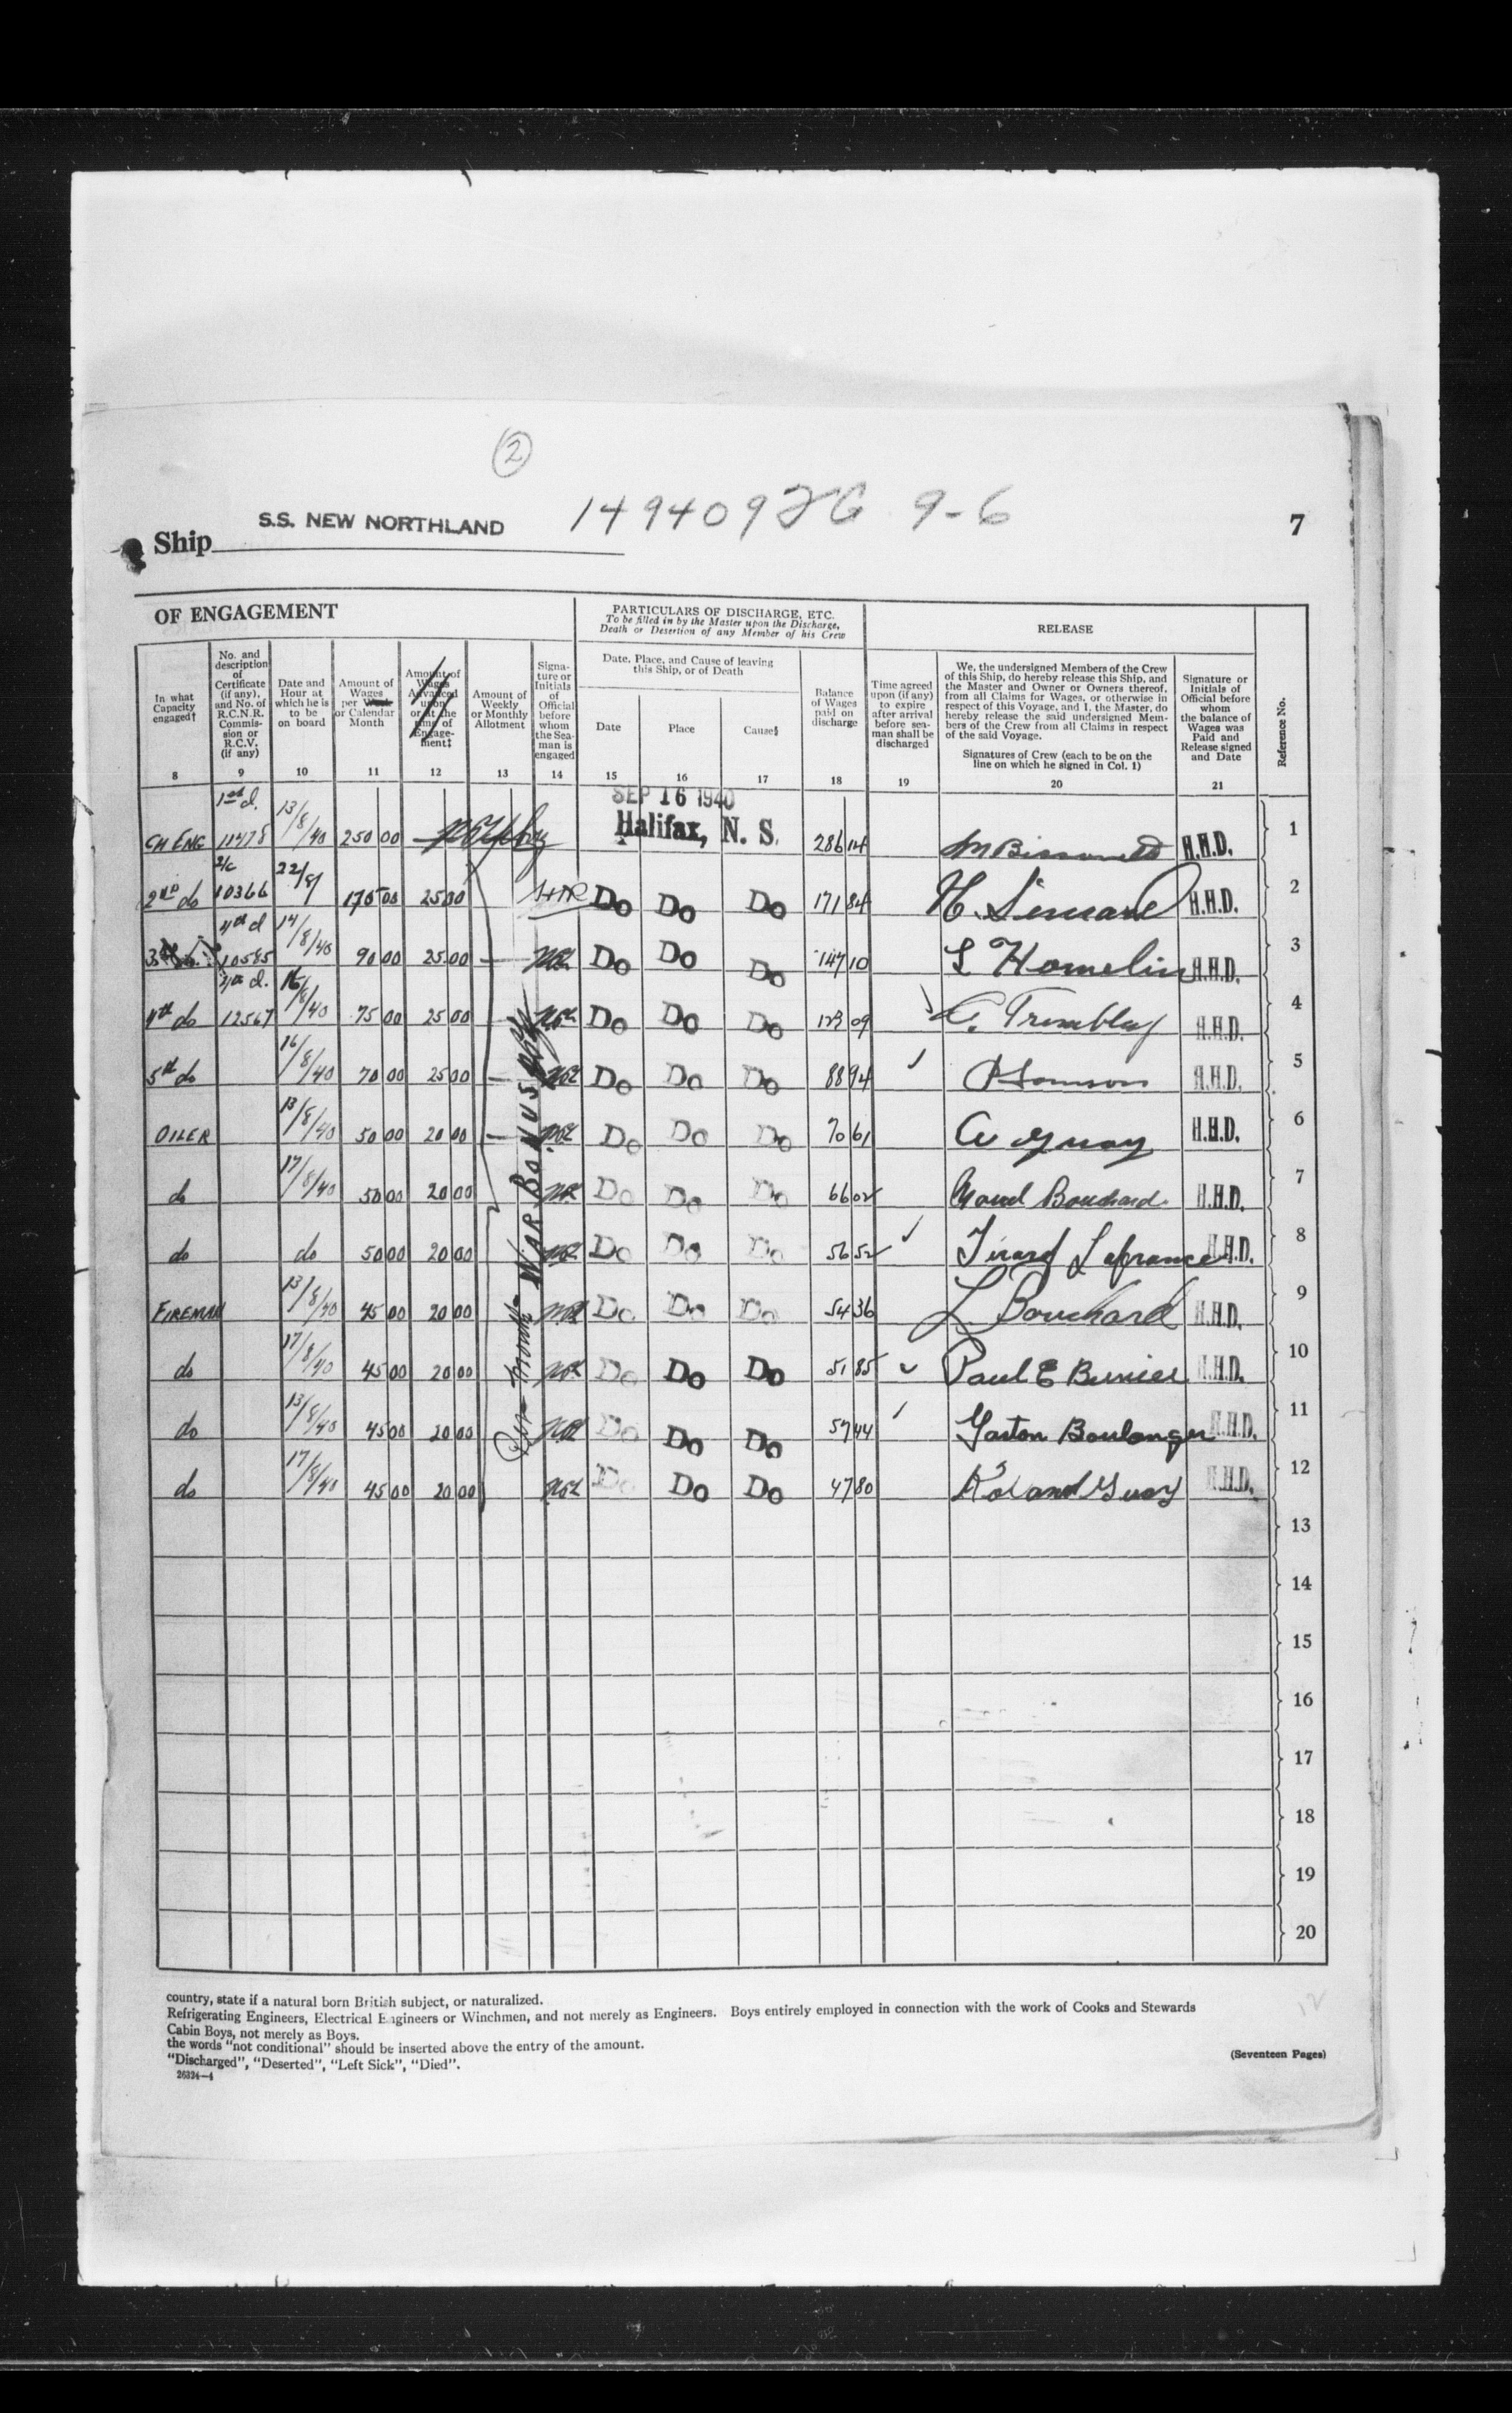 2
S.S. NEW NORTHLAND
149409 9-6
Ship
7
OF ENGAGEMENT
PARTICULARS OF DISCHARGE, ETC.
To be filled in by the Master upon the Discharge,
Death or Desertion of any Member of his Crew
RELEASE
In what
Capacity
engaged†
8
No. and
description
of
Certificate
(if any),
and No. of
R.C.N.R.
Commis-
sion or
R.C.V.
(if any)
9
Date and
Hour at
which he is
to be
on board
10
Amount of
Wages
per Week
or Calendar
Month
11
Amount of
Wages
Advanced
upon
or at the
time of
Engage-
ment‡
12
Amount of
Weekly
or Monthly
Allotment
13
Signa-
ture or
Initials
of
Official
before
whom
the Sea-
man is
engaged
14
Date, Place, and Cause of leaving
this Ship, or of Death
Date
15
Place
16
Cause§
17
Balance
of Wages
paid on
discharge
18
Time agreed
upon (if any)
to expire
after arrival
before sea-
man shall be
discharged
19
We, the undersigned Members of the Crew
of this Ship, do hereby release this Ship, and
the Master and Owner or Owners thereof,
from all Claims for Wages, or otherwise in
respect of this Voyage, and I, the Master, do
hereby release the said undersigned Mem-
bers of the Crew from all Claims in respect
of the said Voyage.
Signatures of Crew (each to be on the
line on which he signed in Col. 1)
20
Signature or
Initials of
Official before
whom
the balance of
Wages was
Paid and
Release signed
and Date
21
Reference No.
CH ENG 1st d. 11478 13/8/40 250 00 SEP 16 1940 Halifax, N. S. 286 14 H.H.D. 1
2nd do 2/c 10366 22/8/ 170 00 25 00 Do Do Do 171 84 H. Simard H.H.D. 2
4th d 10585 14/8/40 90 00 25 00 Do Do Do 147 10 L Homelin H.H.D. 3
4th do 4th d. 12567 16/8/40 75 00 25 00 Do Do Do 123 09 C. Tremblay H.H.D. 4
5th do 16/8/40 70 00 25 00 Do Do Do 88 94 P Samson H.H.D. 5
OILER 13/8/40 50 00 20 00 Do Do Do 70 61 A Guay H.H.D. 6
do 17/8/40 50 00 20 00 Do Do Do 66 02 Bouchard H.H.D. 7
do do 50 00 20 00 Do Do Do 56 52 Lafrance H.H.D. 8
FIREMAN 13/8/40 45 00 20 00 Do Do Do 54 36 L Bouchard H.H.D. 9
do 17/8/40 45 00 20 00 Do Do Do 51 85 Paul E Bernier H.H.D. 10
do 13/8/40 45 00 20 00 Do Do Do 57 44 Gaston Boulanger H.H.D. 11
do 17/8/40 45 00 20 00 Do Do Do 47 80 Roland Guay H.H.D. 12
Per month WAR BONUS
13
14
15
16
17
18
19
20
country, state if a natural born British subject, or naturalized.
Refrigerating Engineers, Electrical Engineers or Winchmen, and not merely as Engineers. Boys entirely employed in connection with the work of Cooks and Stewards
Cabin Boys, not merely as Boys.
the words "not conditional" should be inserted above the entry of the amount.
"Discharged", "Deserted", "Left Sick", "Died".
26324—4
(Seventeen Pages)
12